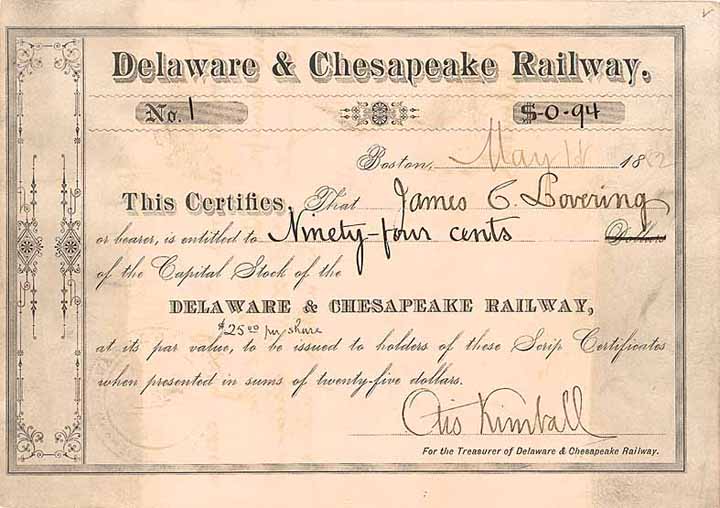 Delaware & Chesapeake Railway.
No. 1 $-0.94
Boston, May 18 1882
This Certifies, That James C. Lovering
or bearer, is entitled to Ninety-four cents Dollars
of the Capital Stock of the
DELAWARE & CHESAPEAKE RAILWAY,
$25.00 per share
at its par value, to be issued to holders of these Scrip Certificates
when presented in sums of twenty-five dollars.
Otis Kimball
For the Treasurer of Delaware & Chesapeake Railway.